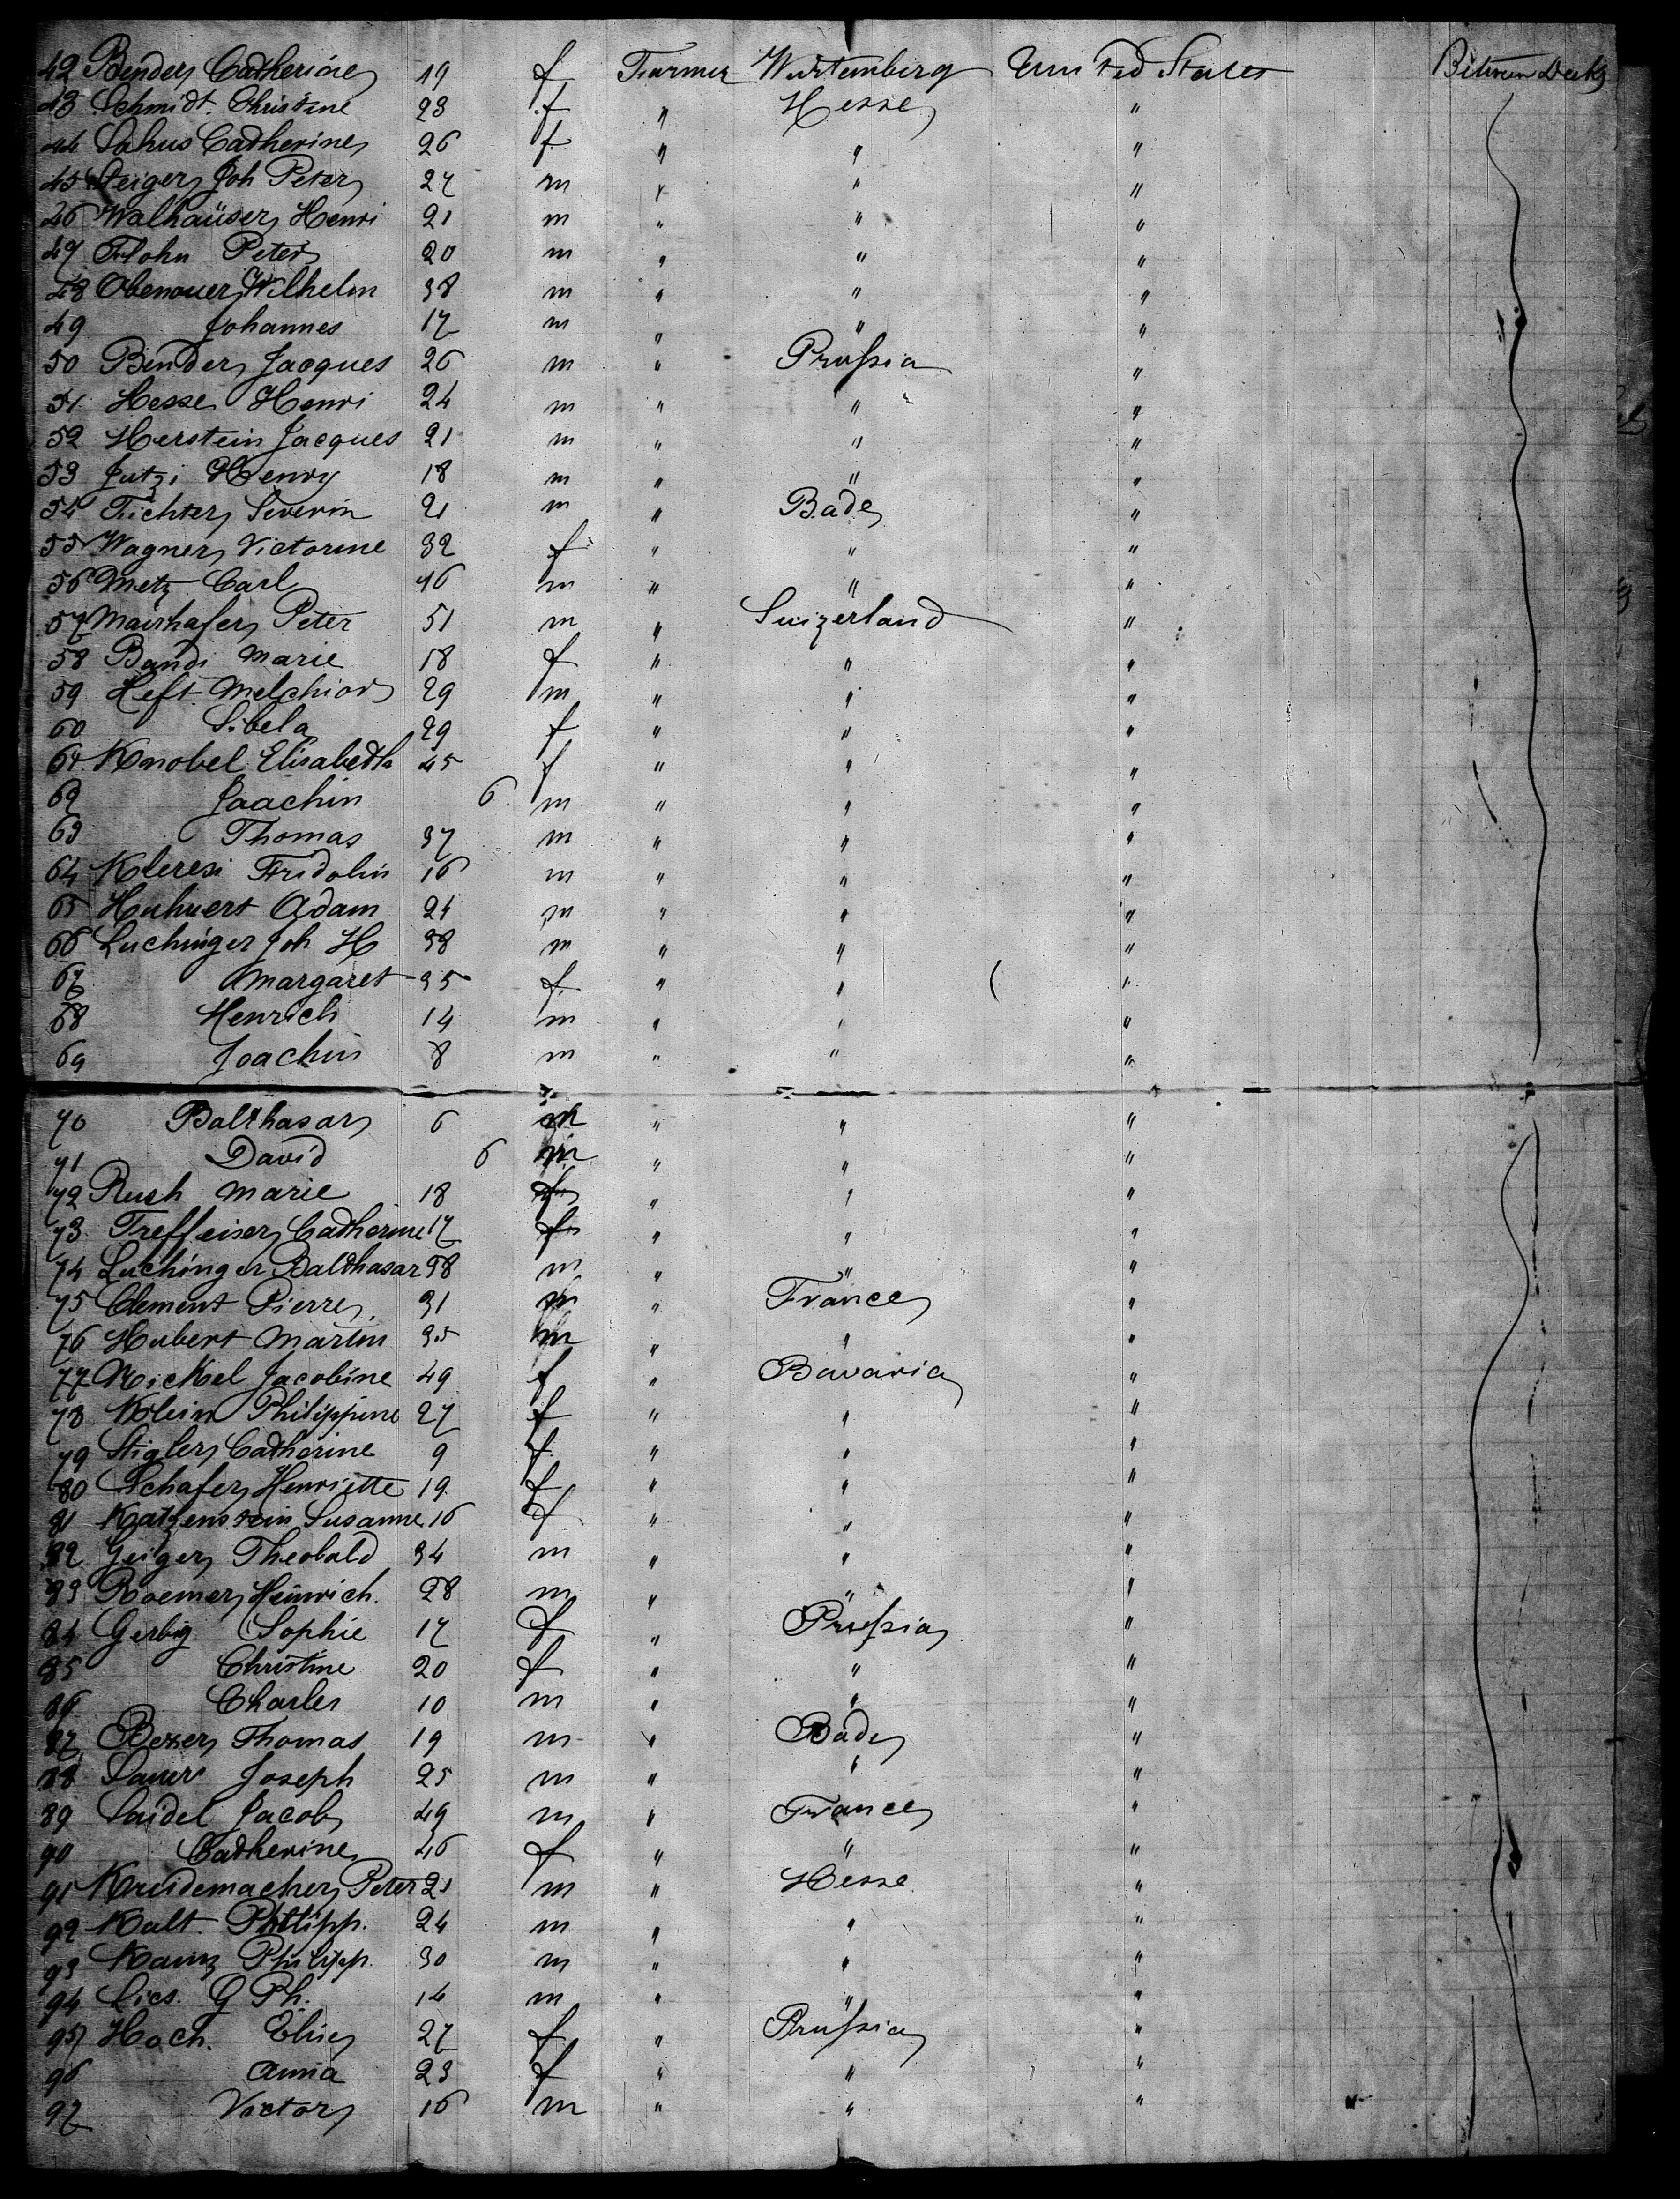 42 Bender Catherine 19 f Farmer Würtemberg United States Between Decks
43 Schmidt Christine 23 f " Hesse "
44 Sahus Catherine 26 f " " "
45 Steiger Joh Peter 27 m " " "
46 Walhaüser Henri 21 m " " "
47 Flohn Peter 20 m " " "
48 Obenauer Wilhelm 38 m " " "
49 Johannes 17 m " " "
50 Binder Jacques 26 m " Prussia "
51 Hesse Henri 24 m " " "
52 Herstein Jacques 21 m " " "
53 Jutzi Henry 18 m " " "
54 Fichter Severin 21 m " Bade "
55 Wagner Victorine 32 f " " "
56 Metz Carl 46 m " " "
57 Mairhafer Peter 51 m " Suizerland "
58 Bandi Marie 18 f " " "
59 Heft Melchior 29 m " " "
60 Sibela 29 f " " "
61 Knobel Elisabeth 45 f " " "
62 Joachin 6 m " " "
63 Thomas 37 m " " "
64 Kleresi Fridolin 16 m " " "
65 Huhnert Adam 24 m " " "
66 Luchinger Joh H 38 m " " "
67 Margaret 35 f " " "
68 Henrich 14 m " " "
69 Joachin 8 m " " "
70 Balthasar 6 m " " "
71 David 6 m " " "
72 Rush Marie 18 f " " "
73 Treffeiser Catherine 17 f " " "
74 Luchinger Balthasar 38 m " " "
75 Clement Pierre 31 m " France "
76 Hubert Martin 35 m " " "
77 Nickel Jacobine 49 f " Bavaria "
78 Klein Philippine 27 f " " "
79 Stigler Catherine 9 f " " "
80 Schafer Henriette 19 f " " "
81 Katzenstein Susanne 16 f " " "
82 Geiger Theobald 34 m " " "
83 Roemer Heinrich. 28 m " " "
84 Gerbig Sophie 17 f " Prussia "
85 Christine 20 f " " "
86 Charles 10 m " " "
87 Bexer Thomas 19 m " Bade "
88 Sauer Joseph 25 m " " "
89 Saidel Jacob 49 m " France "
90 Catherine 46 f " " "
91 Kreidemacher Peter 21 m " Hesse "
92 Kalt Philipp. 24 m " " "
93 Kainz Philipp. 30 m " " "
94 Lies. G Ph. 14 m " " "
95 Hoch. Elise 27 f " Prussia "
96 Anna 23 f " " "
97 Victor 16 m " " "